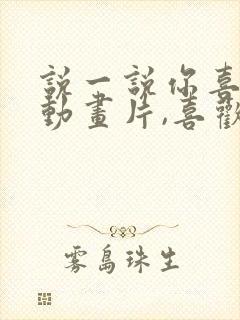 說一說你喜
動畫片,喜歡
雾島珠生